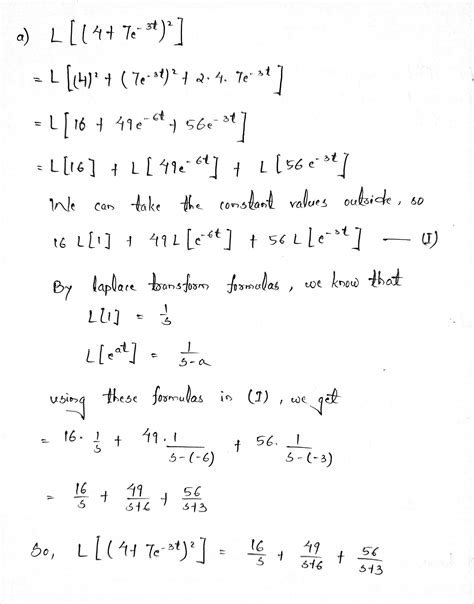 a) L[(4+7e^-3t)²]
= L[(4)² + (7e^-3t)² + 2·4·7e^-3t]
= L[16 + 49e^-6t + 56e^-3t]
= L[16] + L[49e^-6t] + L[56e^-3t]
We can take the constant values outside, so
16 L[1] + 49 L[e^-6t] + 56 L[e^-3t] — (I)
By laplace transform formulas, we know that
L[1] = 1/s
L[e^at] = 1/s-a
using these formulas in (I), we get
= 16·1/s + 49·1/s-(-6) + 56·1/s-(-3)
= 16/s + 49/s+6 + 56/s+3
So, L[(4+7e^-3t)²] = 16/s + 49/s+6 + 56/s+3